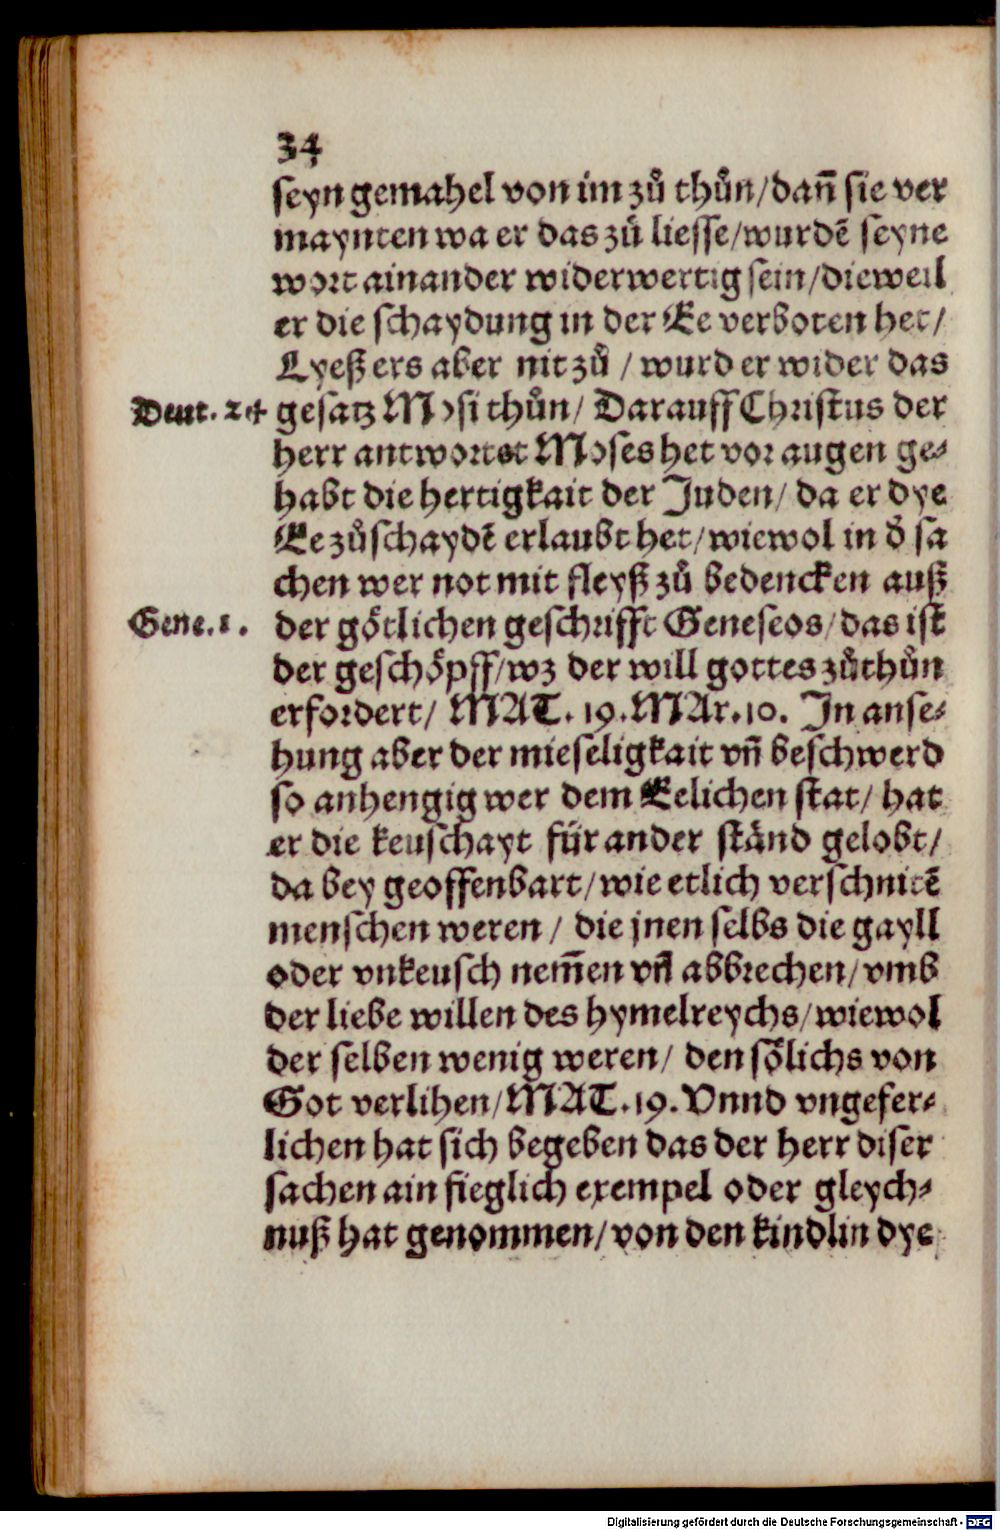 34
seyn gemahel von im zů thůn/dañ sie ver
maynten wa er das zů liesse/wurdē seyne
wort ainander widerwertig sein/dieweil
er die schaydung in der Ee verboten het/
Lyeß ers aber nit zů / wurd er wider das
Deut. 24 gesatz Mosi thůn/ Darauff Christus der
herr antwortet Moses het vor augen ge-
habt die hertigkait der Juden/ da er dye
Ee zůschaydē erlaubt het/wiewol in d̕ sa
chen wer not mit fleyß zů bedencken auß
Gene. 1. der götlichen geschrifft Geneseos/das ist
der geschöpff/wz der will gottes zůthůn
erfordert/ MAT. 19. MAr. 10. In anse-
hung aber der mieseligkait vñ beschwerd
so anhengig wer dem Eelichen stat/ hat
er die keuschayt für ander ständ gelobt/
da bey geoffenbart/wie etlich verschnitē
menschen weren / die jnen selbs die gayll
oder vnkeusch nem̄en vñ abbrechen/vmb
der liebe willen des hymelreychs/wiewol
der selben wenig weren/ den sölichs von
Got verlihen/MAT. 19. Vnnd vngefer-
lichen hat sich begeben das der herr diser
sachen ain fieglich exempel oder gleych-
nuß hat genommen/von den kindlin dye
Digitalisierung gefördert durch die Deutsche Forschungsgemeinschaft - DFG